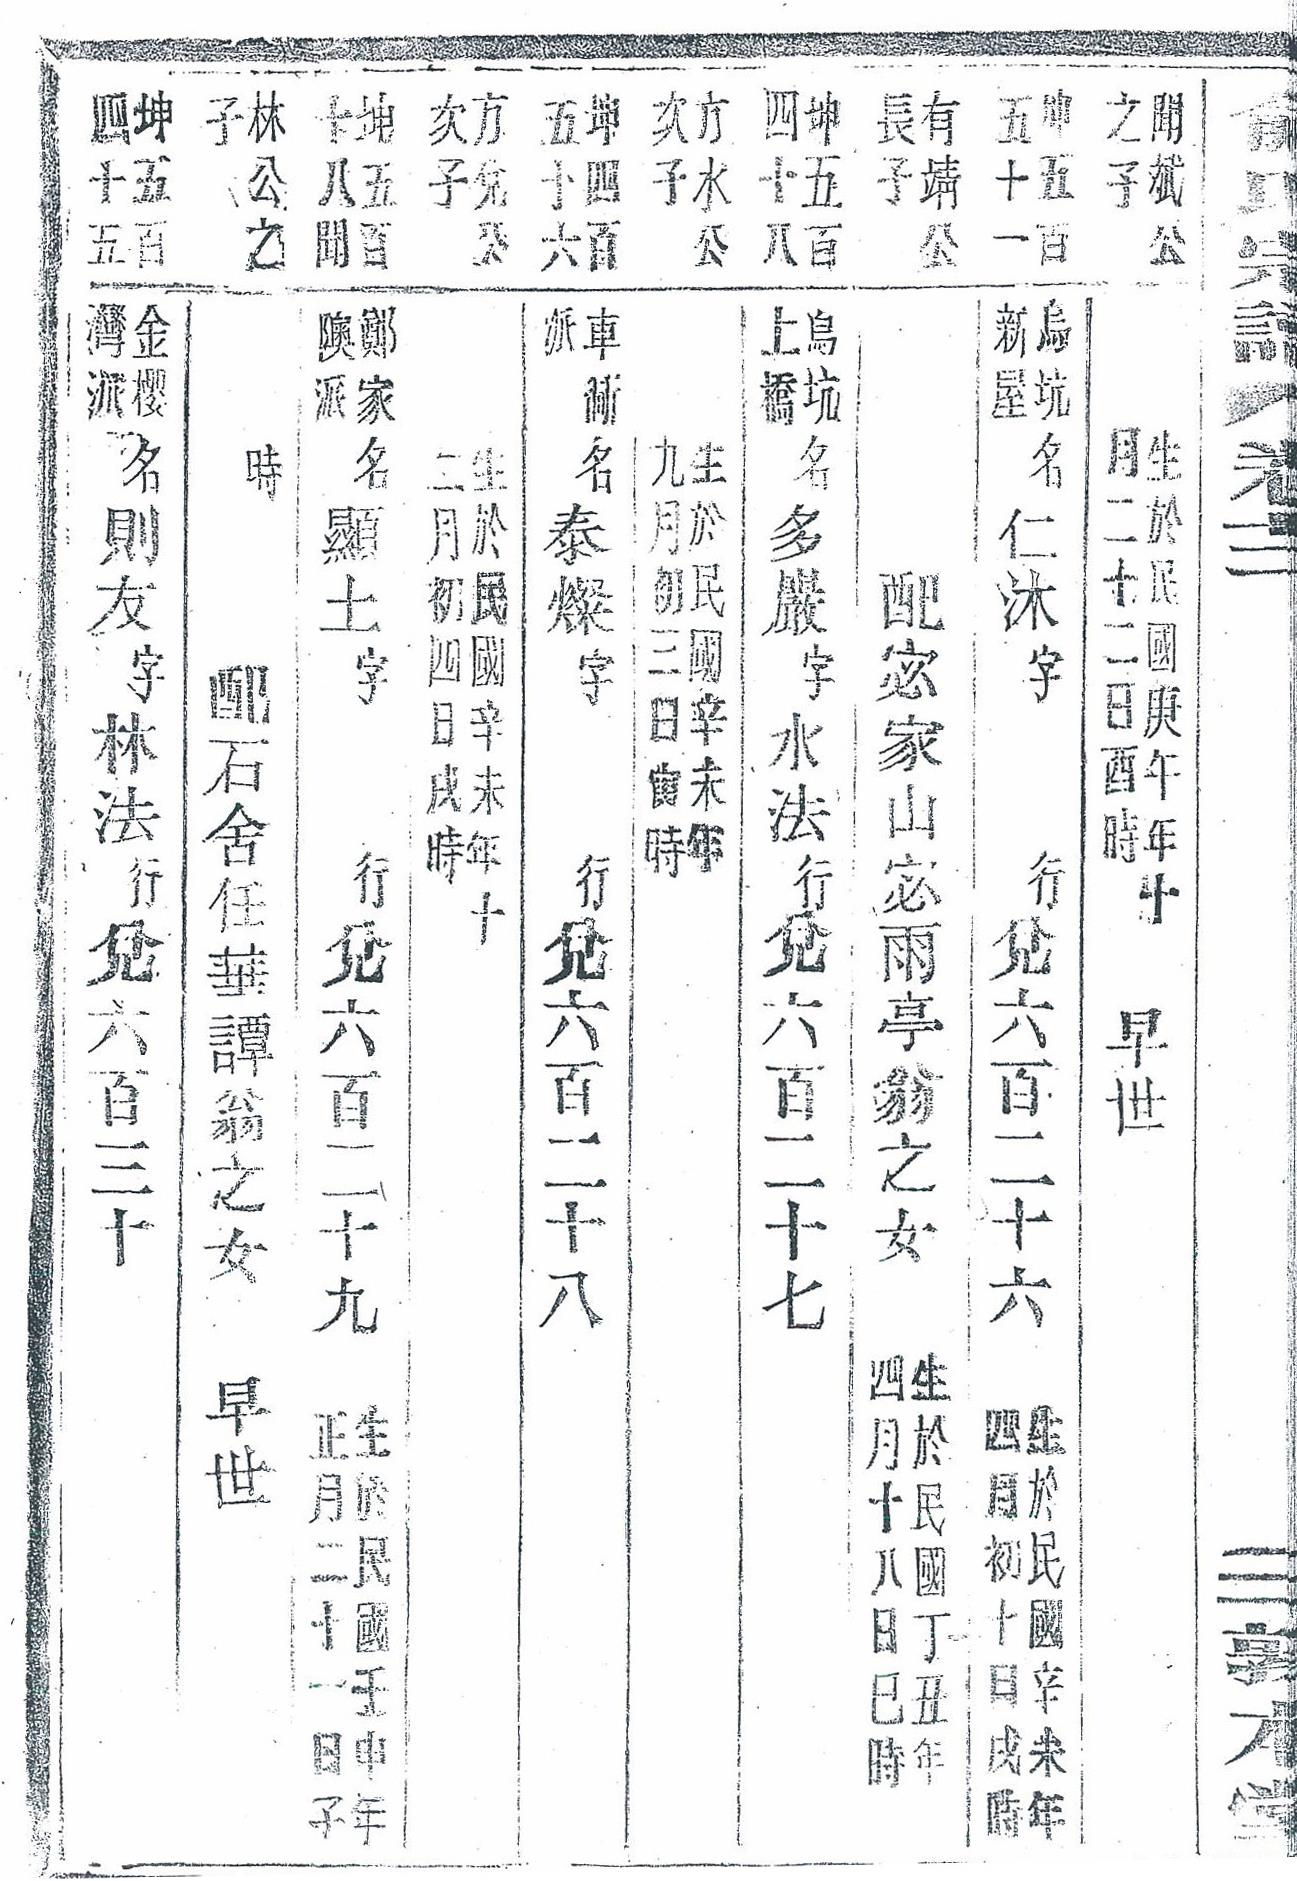 宗譜 卷三
三 敦本堂
聞斌公
之子
生於民國庚午年十
月二十二日酉時
早世
坤五百
五十一
烏坑
新屋
名仁沐字 行兌六百二十六
生於民國辛未年
四月初十日戌時
有靖公
長子
配宓家山宓雨亭翁之女
生於民國丁丑年
四月十八日巳時
坤五百
四十八
烏坑
上橋
名多嚴字水法行兌六百二十七
方水公
次子
生於民國辛未年
九月初三日寅時
坤四百
五十六
車
派
名泰燦字 行兌六百二十八
方兌公
次子
生於民國辛未年十
二月初四日戌時
坤五百
十八聞
鄭家
陳派
名顯土字 行兌六百二十九
生於民國壬申年
正月二十一日子
林公之
子
時
配石舍任華譚翁之女 早世
坤五百
四十五
金櫻
灣派
名則友字林法行兌六百三十